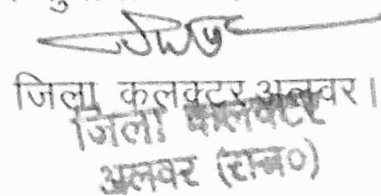 जिला कलक्टर अलवर।
जिला कलक्टर
अलवर (राज०)